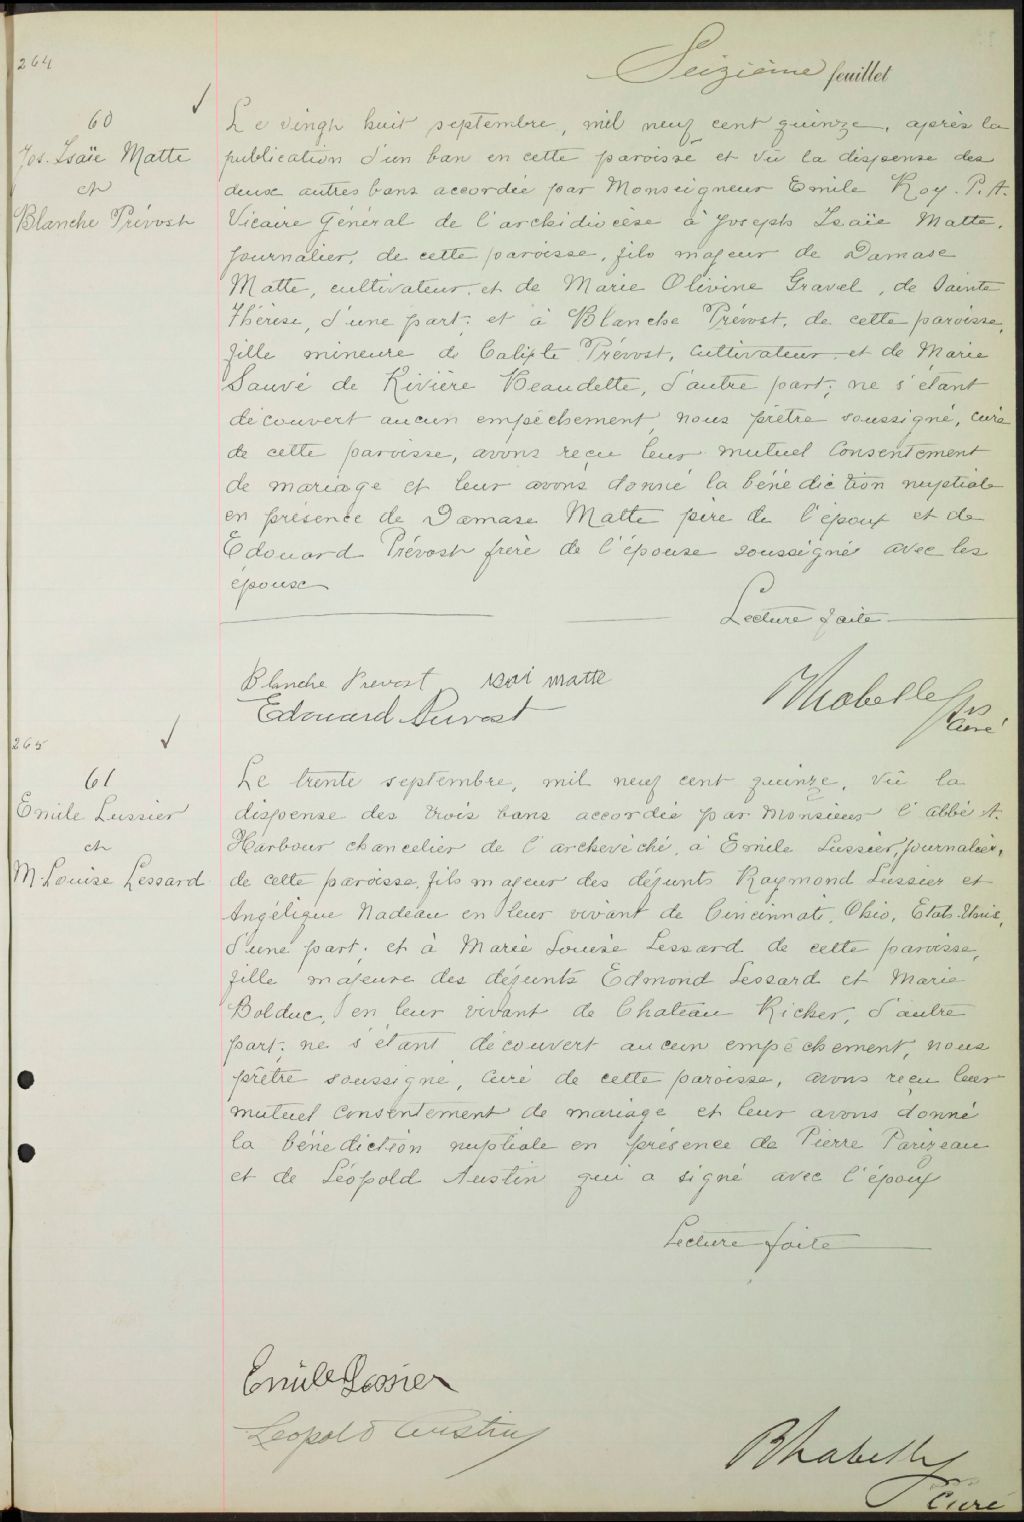 264
Seizième feuillet
60
Jos. Isaïe Matte
et
Blanche Prévost
Le vingt huit septembre, mil neuf cent quinze, après la
publication d'un ban en cette paroisse et vû la dispense des
deux autres bans accordée par Monseigneur Emile Roy. P. A.
Vicaire Général de l'archidiocèse à Joseph Isaïe Matte,
journalier, de cette paroisse, fils majeur de Damase
Matte, cultivateur, et de Marie Olivine Gravel, de Sainte
Thérèse, d'une part; et à Blanche Prévost, de cette paroisse,
fille mineure de Calixte Prévost, cultivateur et de Marie
Sauvé de Rivière Beaudette, d'autre part; ne s'étant
découvert aucun empêchement, nous prêtre soussigné, curé
de cette paroisse, avons reçu leur mutuel consentement
de mariage et leur avons donné la bénédiction nuptiale
en présence de Damase Matte père de l'époux et de
Edouard Prévost frère de l'épouse soussigné avec les
époux
Lecture faite
Blanche Prevost isai matte
Edouard Prevost
curé
265
61
Emile Lussier
et
M. Louise Lessard
Le trente septembre, mil neuf cent quinze, vû la
dispense des trois bans accordée par Monsieur l'abbé A.
Harbour chancelier de l'archevêché, à Emile Lussier, journalier,
de cette paroisse, fils majeur des défunts Raymond Lussier et
Angélique Nadeau en leur vivant de Cincinnati, Ohio, Etats Unis,
d'une part; et à Marie Louise Lessard de cette paroisse,
fille majeure des défunts Edmond Lessard et Marie
Bolduc, en leur vivant de Chateau Richer, d'autre
part; ne s'étant découvert aucun empêchement, nous
prêtre soussigné, curé de cette paroisse, avons reçu leur
mutuel consentement de mariage et leur avons donné
la bénédiction nuptiale en présence de Pierre Parizeau
et de Léopold Austin qui a signé avec l'époux
Lecture faite
Emile Lussier
Leopold Austin
Curé